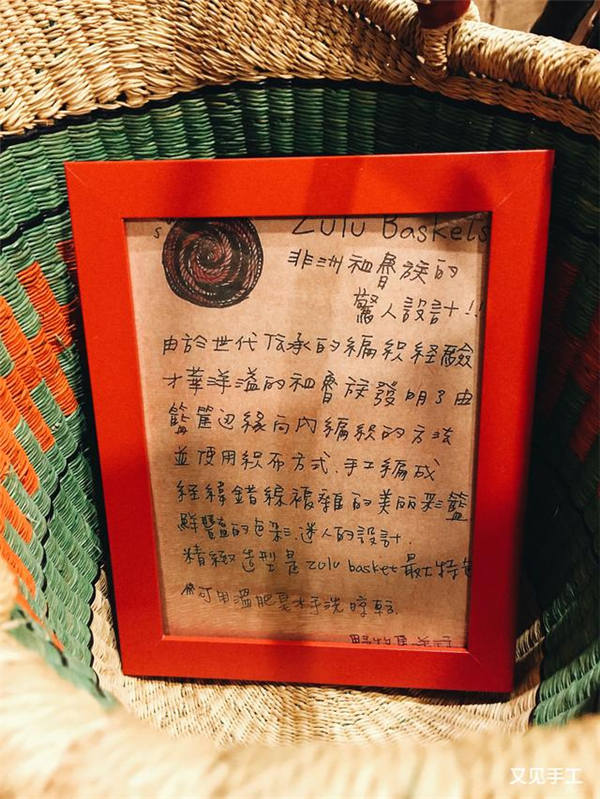 Zulu Baskets
非洲祖魯族的
驚人設計!!
由於世代傳承的編織経驗
才華洋溢的祖魯族發明了由
籃筐边緣向内編織的方法
並使用织布方式.手工編成
经緯錯綜複雜的美丽彩籃
鮮豔的色彩.迷人的設計.
精緻造型是Zulu basket最大特色
可用溫肥皂水手洗晾乾.
又见手工